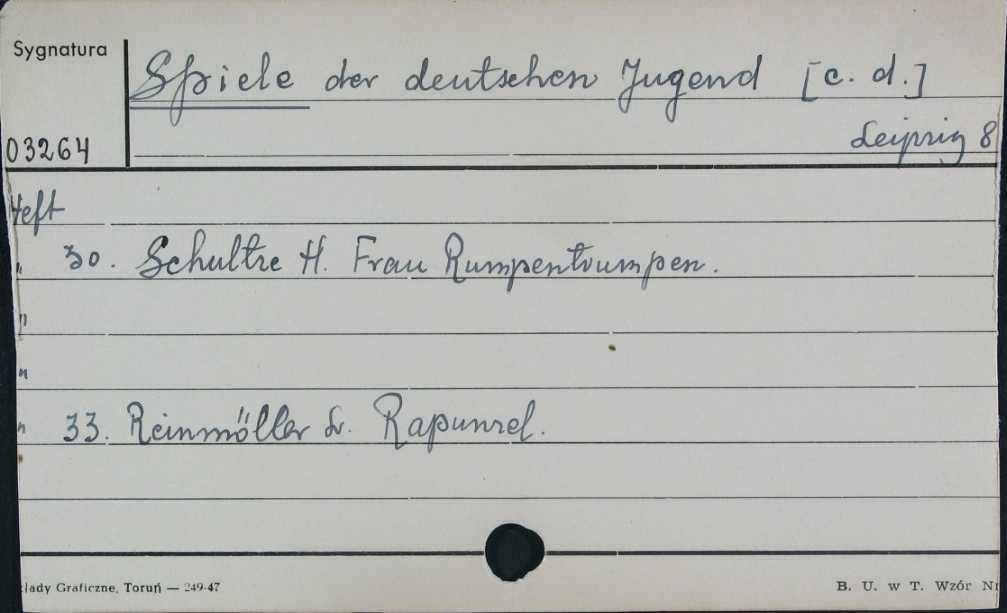 Sygnatura
Spiele der deutschen Jugend [c. d.]
03264
Leipzig 8
Heft
" 30. Schultze H. Frau Rumpentrumpen.
"
"
" 33. Reinmöller Lr. Rapunzel.
łady Graficzne, Toruń — 249-47
B. U. w T. Wzór Nr